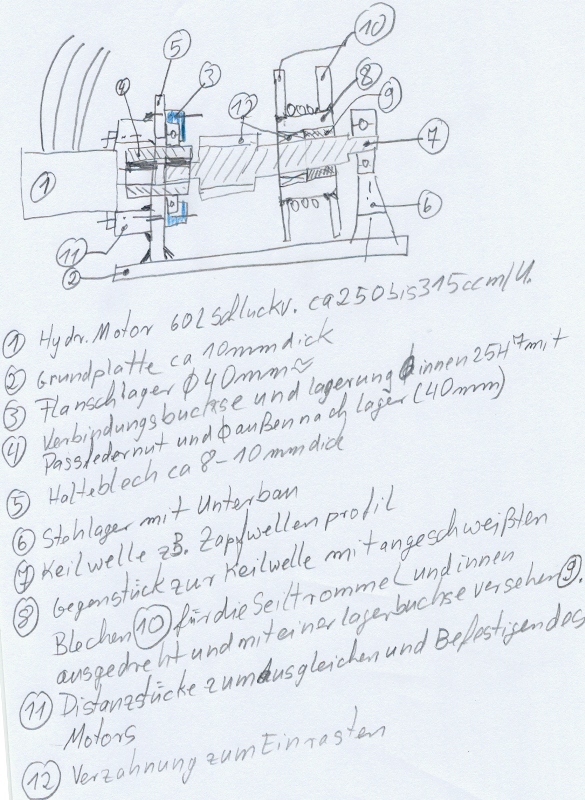 10
5
3
8
4
12
9
7
1
6
11
2
① Hydr. Motor 60L Schluckv. ca 250 bis 315 ccm/U.
② Grundplatte ca 10mm dick
③ Flanschlager ϕ 40mm ~
④ Verbindungsbuchse und lagerung ϕ innen 25H7 mit
Passfedernut und ϕ außen nach lager (40mm)
⑤ Halteblech ca 8-10mm dick
⑥ Stehlager mit Unterbau
⑦ Keilwelle zB. Zapfwellenprofil
⑧ Gegenstück zur Keilwelle mit angeschweißten
Blechen ⑩ für die Seiltrommel und innen
ausgedreht und mit einer lagerbuchse versehen ⑨.
⑪ Distanzstücke zum Ausgleichen und Befestigen des
Motors
⑫ Verzahnung zum Einrasten